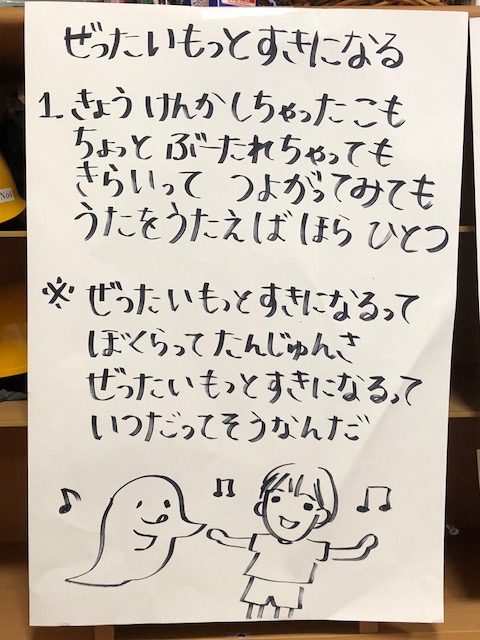 ぜったいもっとすきになる
1. きょう けんか しちゃった こも
ちょっと ぶーたれちゃっても
きらいって つよがってみても
うたをうたえば ほら ひとつ
※ ぜったいもっとすきになるって
ぼくらってたんじゅんさ
ぜったいもっとすきになるって
いつだってそうなんだ
No1